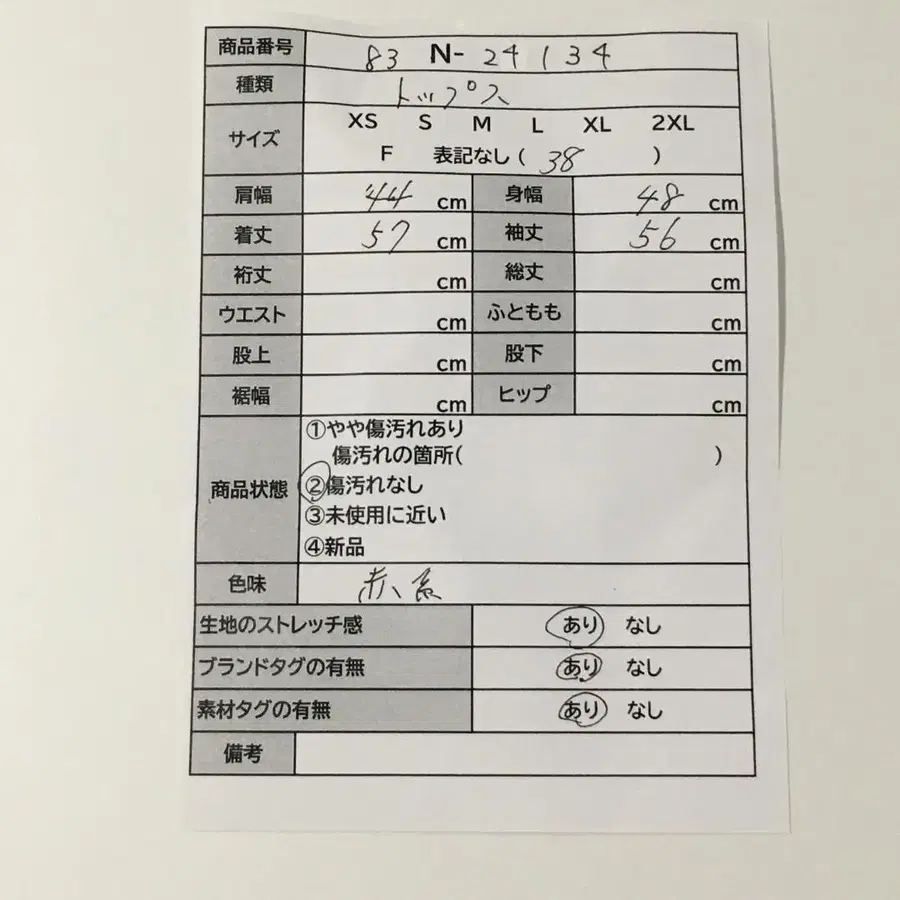 商品番号 83 N- 24134
種類 トップス
サイズ XS S M L XL 2XL
F 表記なし ( 38 )
肩幅 44 cm 身幅 48 cm
着丈 57 cm 袖丈 56 cm
裄丈 cm 総丈 cm
ウエスト cm ふともも cm
股上 cm 股下 cm
裾幅 cm ヒップ cm
商品状態 ①やや傷汚れあり
傷汚れの箇所( )
②傷汚れなし
③未使用に近い
④新品
色味 赤系
生地のストレッチ感 あり なし
ブランドタグの有無 あり なし
素材タグの有無 あり なし
備考